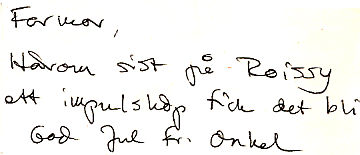 Farmor,
Härom sist på Roissy
ett impulsköp fick det bli
God Jul fr. Onkel